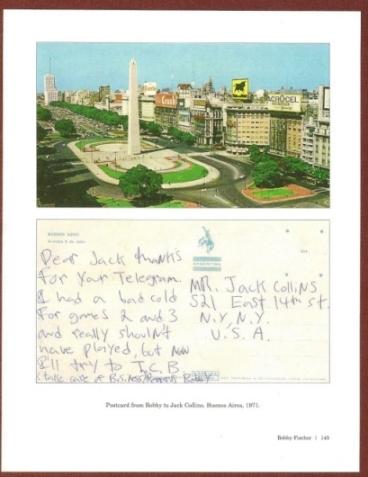 ACROCEL
BUENOS AIRES
Dear Jack thanks
for Your Telegram.
I had a bad cold
for games 2 and 3
and really shouldn't
have played, but now
I'll try to T.C.B
(take care of Business) Bobby
MR. Jack Collins
521 East 14th St.
N.Y. N.Y.
U.S.A.
Postcard from Bobby to Jack Collins, Buenos Aires, 1971.
Bobby Fischer | 145